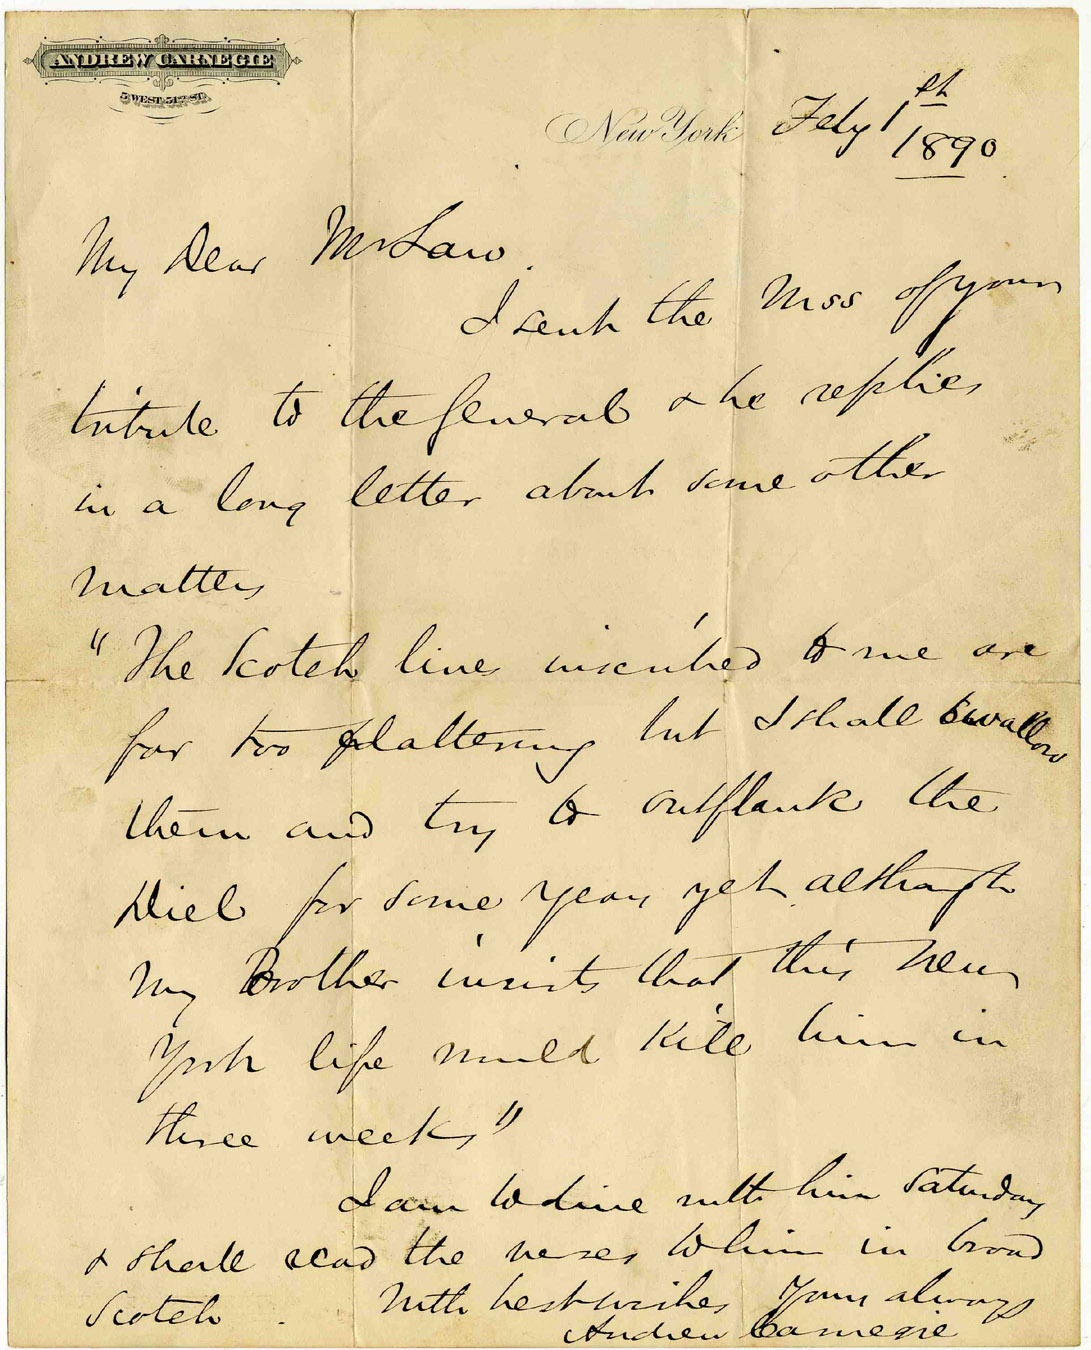 ANDREW CARNEGIE
5 WEST 51ST ST.
New York Feby 1st
1890
My Dear Mr Law.
I sent the Mss of your
tribute to the General & he replies
in a long letter about some other
matters
"The Scotch lines inscribed to me are
far too flattering but I shall swallow
them and try to outflank the
Diel for some years yet although
my Brother insists that this New
York life would kill him in
three weeks"
I am to dine with him Saturday
& shall read the verses to him in broad
Scotch. With best wishes Yours always
Andrew Carnegie